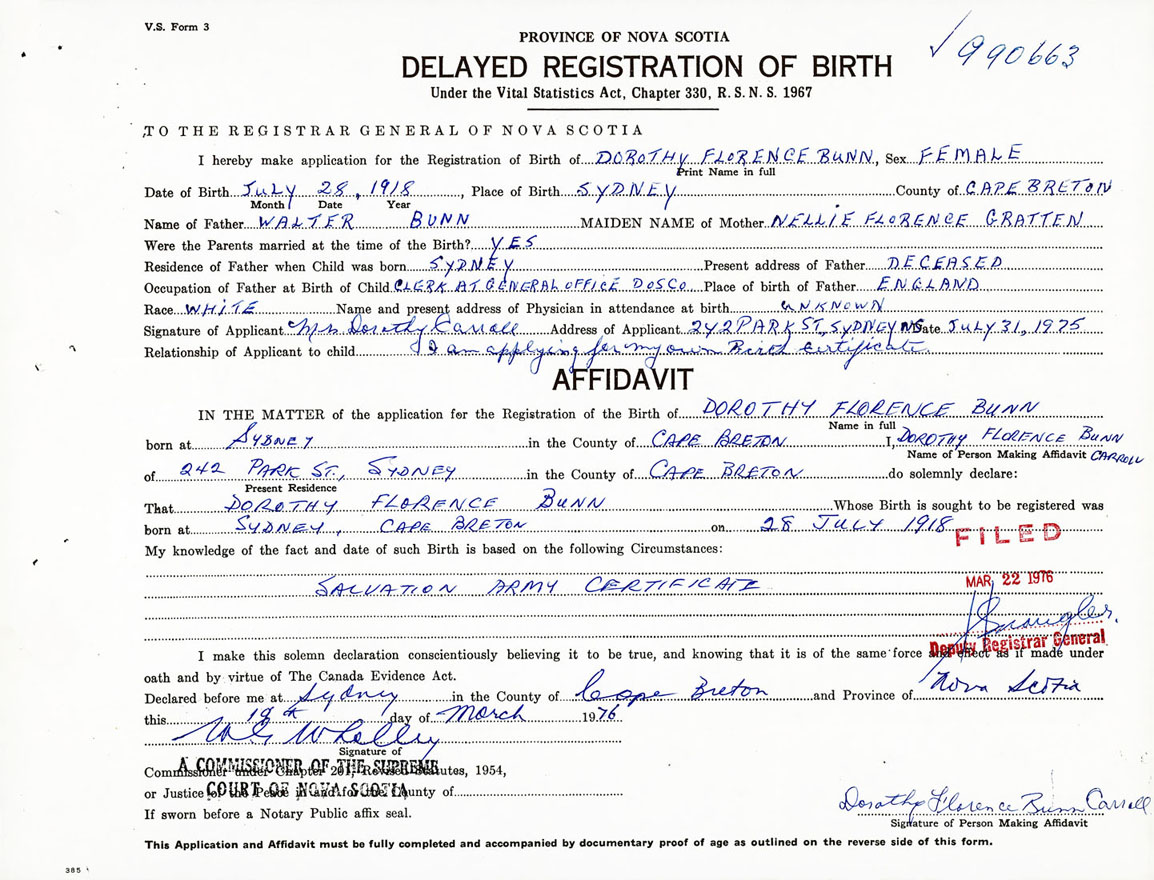 V.S. Form 3
PROVINCE OF NOVA SCOTIA
✓ 990663
DELAYED REGISTRATION OF BIRTH
Under the Vital Statistics Act, Chapter 330, R.S.N.S. 1967
TO THE REGISTRAR GENERAL OF NOVA SCOTIA
I hereby make application for the Registration of Birth of DOROTHY FLORENCE BUNN, Sex FEMALE
Print Name in full
Date of Birth JULY 28, 1918, Place of Birth SYDNEY County of CAPE BRETON
Month Date Year
Name of Father WALTER BUNN MAIDEN NAME of Mother NELLIE FLORENCE GRATTEN
Were the Parents married at the time of the Birth? YES
Residence of Father when Child was born SYDNEY Present address of Father DECEASED
Occupation of Father at Birth of Child CLERK AT GENERAL OFFICE DOSCO Place of birth of Father ENGLAND
Race WHITE Name and present address of Physician in attendance at birth UNKNOWN
Signature of Applicant Mrs Dorothy Carroll Address of Applicant 242 PARK ST, SYDNEY NS Date JULY 31, 1975
Relationship of Applicant to child I am applying for my own Birth Certificate.
AFFIDAVIT
IN THE MATTER of the application for the Registration of the Birth of DOROTHY FLORENCE BUNN
Name in full
born at SYDNEY in the County of CAPE BRETON I, DOROTHY FLORENCE BUNN
Name of Person Making Affidavit CARROLL
of 242 PARK ST., SYDNEY in the County of CAPE BRETON do solemnly declare:
Present Residence
That DOROTHY FLORENCE BUNN Whose Birth is sought to be registered was
born at SYDNEY, CAPE BRETON on 28 JULY 1918
FILED
My knowledge of the fact and date of such Birth is based on the following Circumstances:
MAR 22 1976
SALVATION ARMY CERTIFICATE
Deputy Registrar General
I make this solemn declaration conscientiously believing it to be true, and knowing that it is of the same force and effect as if made under
oath and by virtue of The Canada Evidence Act.
Declared before me at Sydney in the County of Cape Breton and Province of Nova Scotia
this 19th day of March 1976
Signature of
A COMMISSIONER OF THE SUPREME
Commissioner under Chapter 201, Revised Statutes, 1954,
COURT OF NOVA SCOTIA
or Justice of the Peace in and for the County of
If sworn before a Notary Public affix seal.
Dorothy Florence Bunn Carroll
Signature of Person Making Affidavit
This Application and Affidavit must be fully completed and accompanied by documentary proof of age as outlined on the reverse side of this form.
385